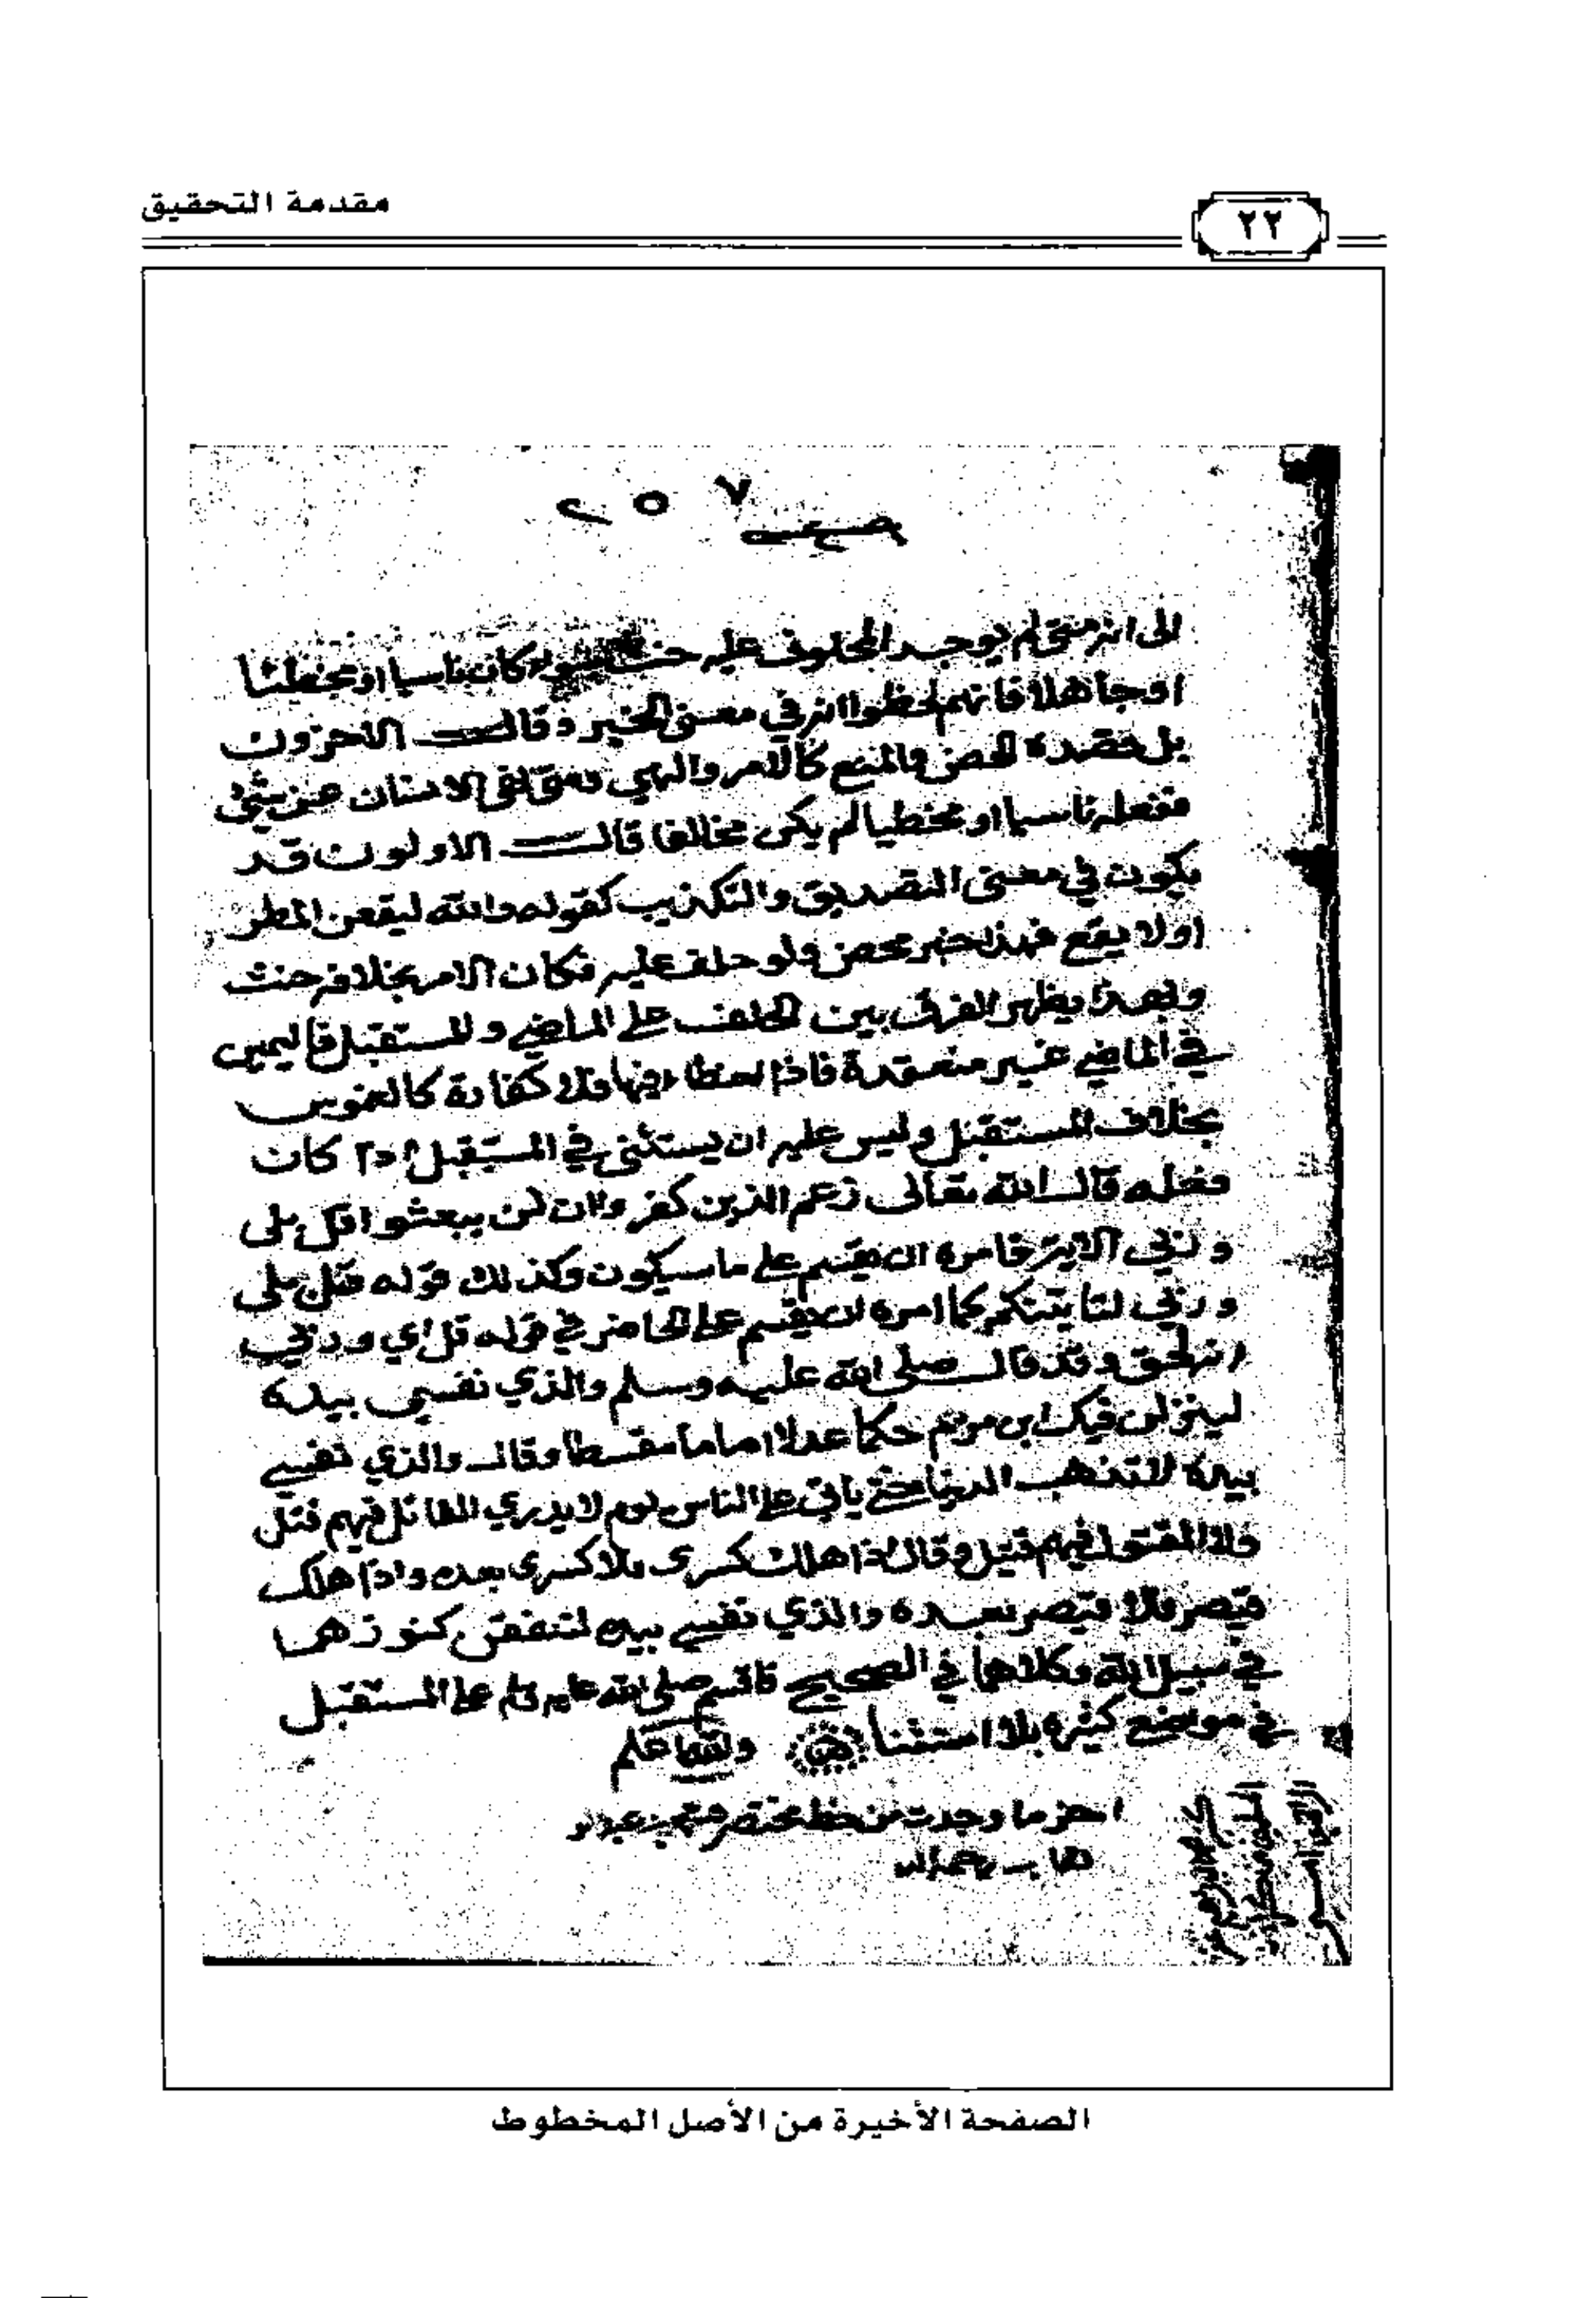 مقدمة التحقيق
٢٢
٢٥٧
الى انه متى لم يوجد المحلوف عليه حنث سواء كان ناسيا او مخطئا
او جاهلا فانهم لحظوا انه في معنى الخبر وقال الآخرون
بل قصده الحض والمنع كالامر والنهي ومتى نهي الانسان عن شيء
ففعله ناسيا او مخطيا لم يكن مخالفا قال الاولون قد
يكون في معنى التصديق والتكذيب كقوله والله ليقعن المطر
او لا يقع فهذا خبر محض ولو حلف عليه فكان الامر بخلافه حنث
وبهذا يظهر الفرق بين الحلف على الماضي والمستقبل فاليمين
في الماضي غير منعقدة فاذا اخطا فيها فلا كفارة كالغموس
بخلاف المستقبل وليس عليه ان يستثني في المستقبل اذا كان
فعله قال الله تعالى زعم الذين كفروا ان لن يبعثوا قل بلى
وربي الآية فامره ان يقسم على ما سيكون وكذلك قوله قل بلى
وربي لتاتينكم كما امره ان يقسم على الحاضر في قوله قل اي وربي
انه لحق وقد قال صلى الله عليه وسلم والذي نفسي بيده
لينزلن فيكم ابن مريم حكما عدلا اماما مقسطا وقال والذي نفسي
بيده لا تذهب الدنيا حتى ياتي على الناس يوم لا يدري القاتل فيم قتل
ولا المقتول فيم قتل وقال اذا هلك كسرى فلا كسرى بعده واذا هلك
قيصر فلا قيصر بعده والذي نفسي بيده لتنفقن كنوزهما
في سبيل الله وكلاهما في الصحيح فاقسم صلى الله عليه وسلم على المستقبل
في مواضع كثيرة بلا استثنا والله اعلم
اخر ما وجدت من خط مختصره
الصفحة الأخيرة من الأصل المخطوط